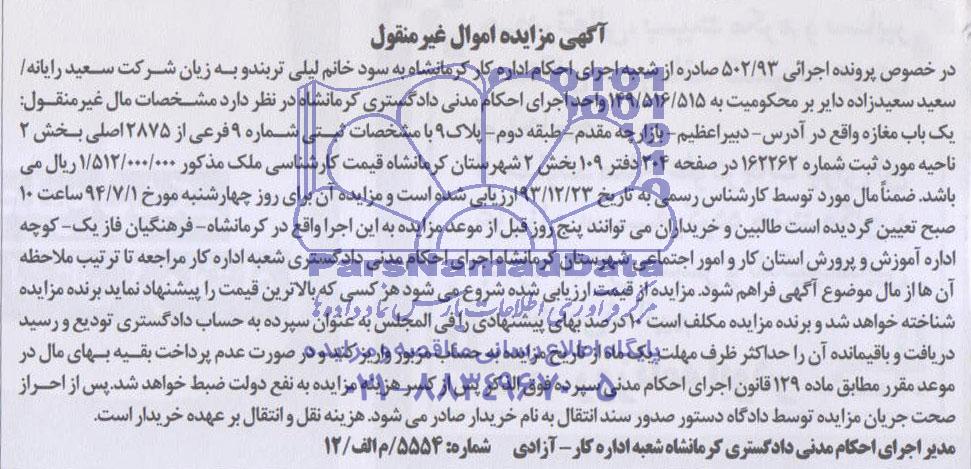 آگهی مزایده اموال غیر منقول
در خصوص پرونده اجرائی ۵۰۲/۹۳ صادره از شعبه اجرای احکام اداره کار کرمانشاه به سود خانم لیلی تربندو به زیان شرکت سعید رایانه/
سعید سعیدزاده دایر بر محکومیت به ۱۴۹/۵۱۶/۵۱۵ واحد اجرای احکام مدنی دادگستری کرمانشاه در نظر دارد مشخصات مال غیرمنقول:
یک باب مغازه واقع در آدرس- دبیراعظیم- بازارچه مقدم- طبقه دوم- پلاک ۹ با مشخصات ثبتی شماره ۹ فرعی از ۲۸۷۵ اصلی بخش ۲
ناحیه مورد ثبت شماره ۱۶۲۲۶۲ در صفحه ۲۰۴ دفتر ۱۰۹ بخش ۲ شهرستان کرمانشاه قیمت کارشناسی ملک مذکور ۱/۵۱۲/۰۰۰/۰۰۰ ریال می
باشد. ضمناً مال مورد توسط کارشناس رسمی به تاریخ ۹۳/۱۲/۲۳ ارزیابی شده است و مزایده آن برای روز چهارشنبه مورخ ۹۴/۷/۱ ساعت ۱۰
صبح تعیین گردیده است طالبین و خریداران می توانند پنج روز قبل از موعد مزایده به این اجرا واقع در کرمانشاه- فرهنگیان فاز یک- کوچه
اداره آموزش و پرورش استان کار و امور اجتماعی شهرستان کرمانشاه اجرای احکام مدنی دادگستری شعبه اداره کار مراجعه تا ترتیب ملاحظه
آن ها از مال موضوع آگهی فراهم شود. مزایده از قیمت ارزیابی شده شروع می شود هر کسی که بالاترین قیمت را پیشنهاد نماید برنده مزایده
شناخته خواهد شد و برنده مزایده مکلف است ۱۰ درصد بهای پیشنهادی را فی المجلس به عنوان سپرده به حساب دادگستری تودیع و رسید
دریافت و باقیمانده آن را حداکثر ظرف مهلت یک ماه از تاریخ مزایده به حساب مزبور واریز کند و در صورت عدم پرداخت بقیه بهای مال در
موعد مقرر مطابق ماده ۱۲۹ قانون اجرای احکام مدنی سپرده فوق الذکر پس از کسر هزینه مزایده به نفع دولت ضبط خواهد شد.پس از احراز
صحت جریان مزایده توسط دادگاه دستور صدور سند انتقال به نام خریدار صادر می شود. هزینه نقل و انتقال بر عهده خریدار است.
مدیر اجرای احکام مدنی دادگستری کرمانشاه شعبه اداره کار – آزادی شماره: ۵۵۵۴/م الف/۱۲
ParsNamadData
مرکز فرآوری اطلاعات پارس نماد داده ها
پایگاه اطلاع رسانی مناقصه و مزایده
۰۲۱-۸۸۳۴۹۶۷۰-۵